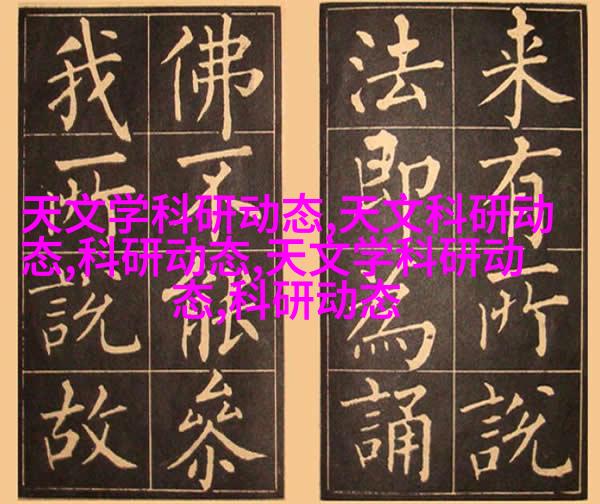 来有所說
法即為誦
佛不能叅
我所說故
天文学科研动态,天文科研动
态,科研动态,天文学科研动
态,科研动态